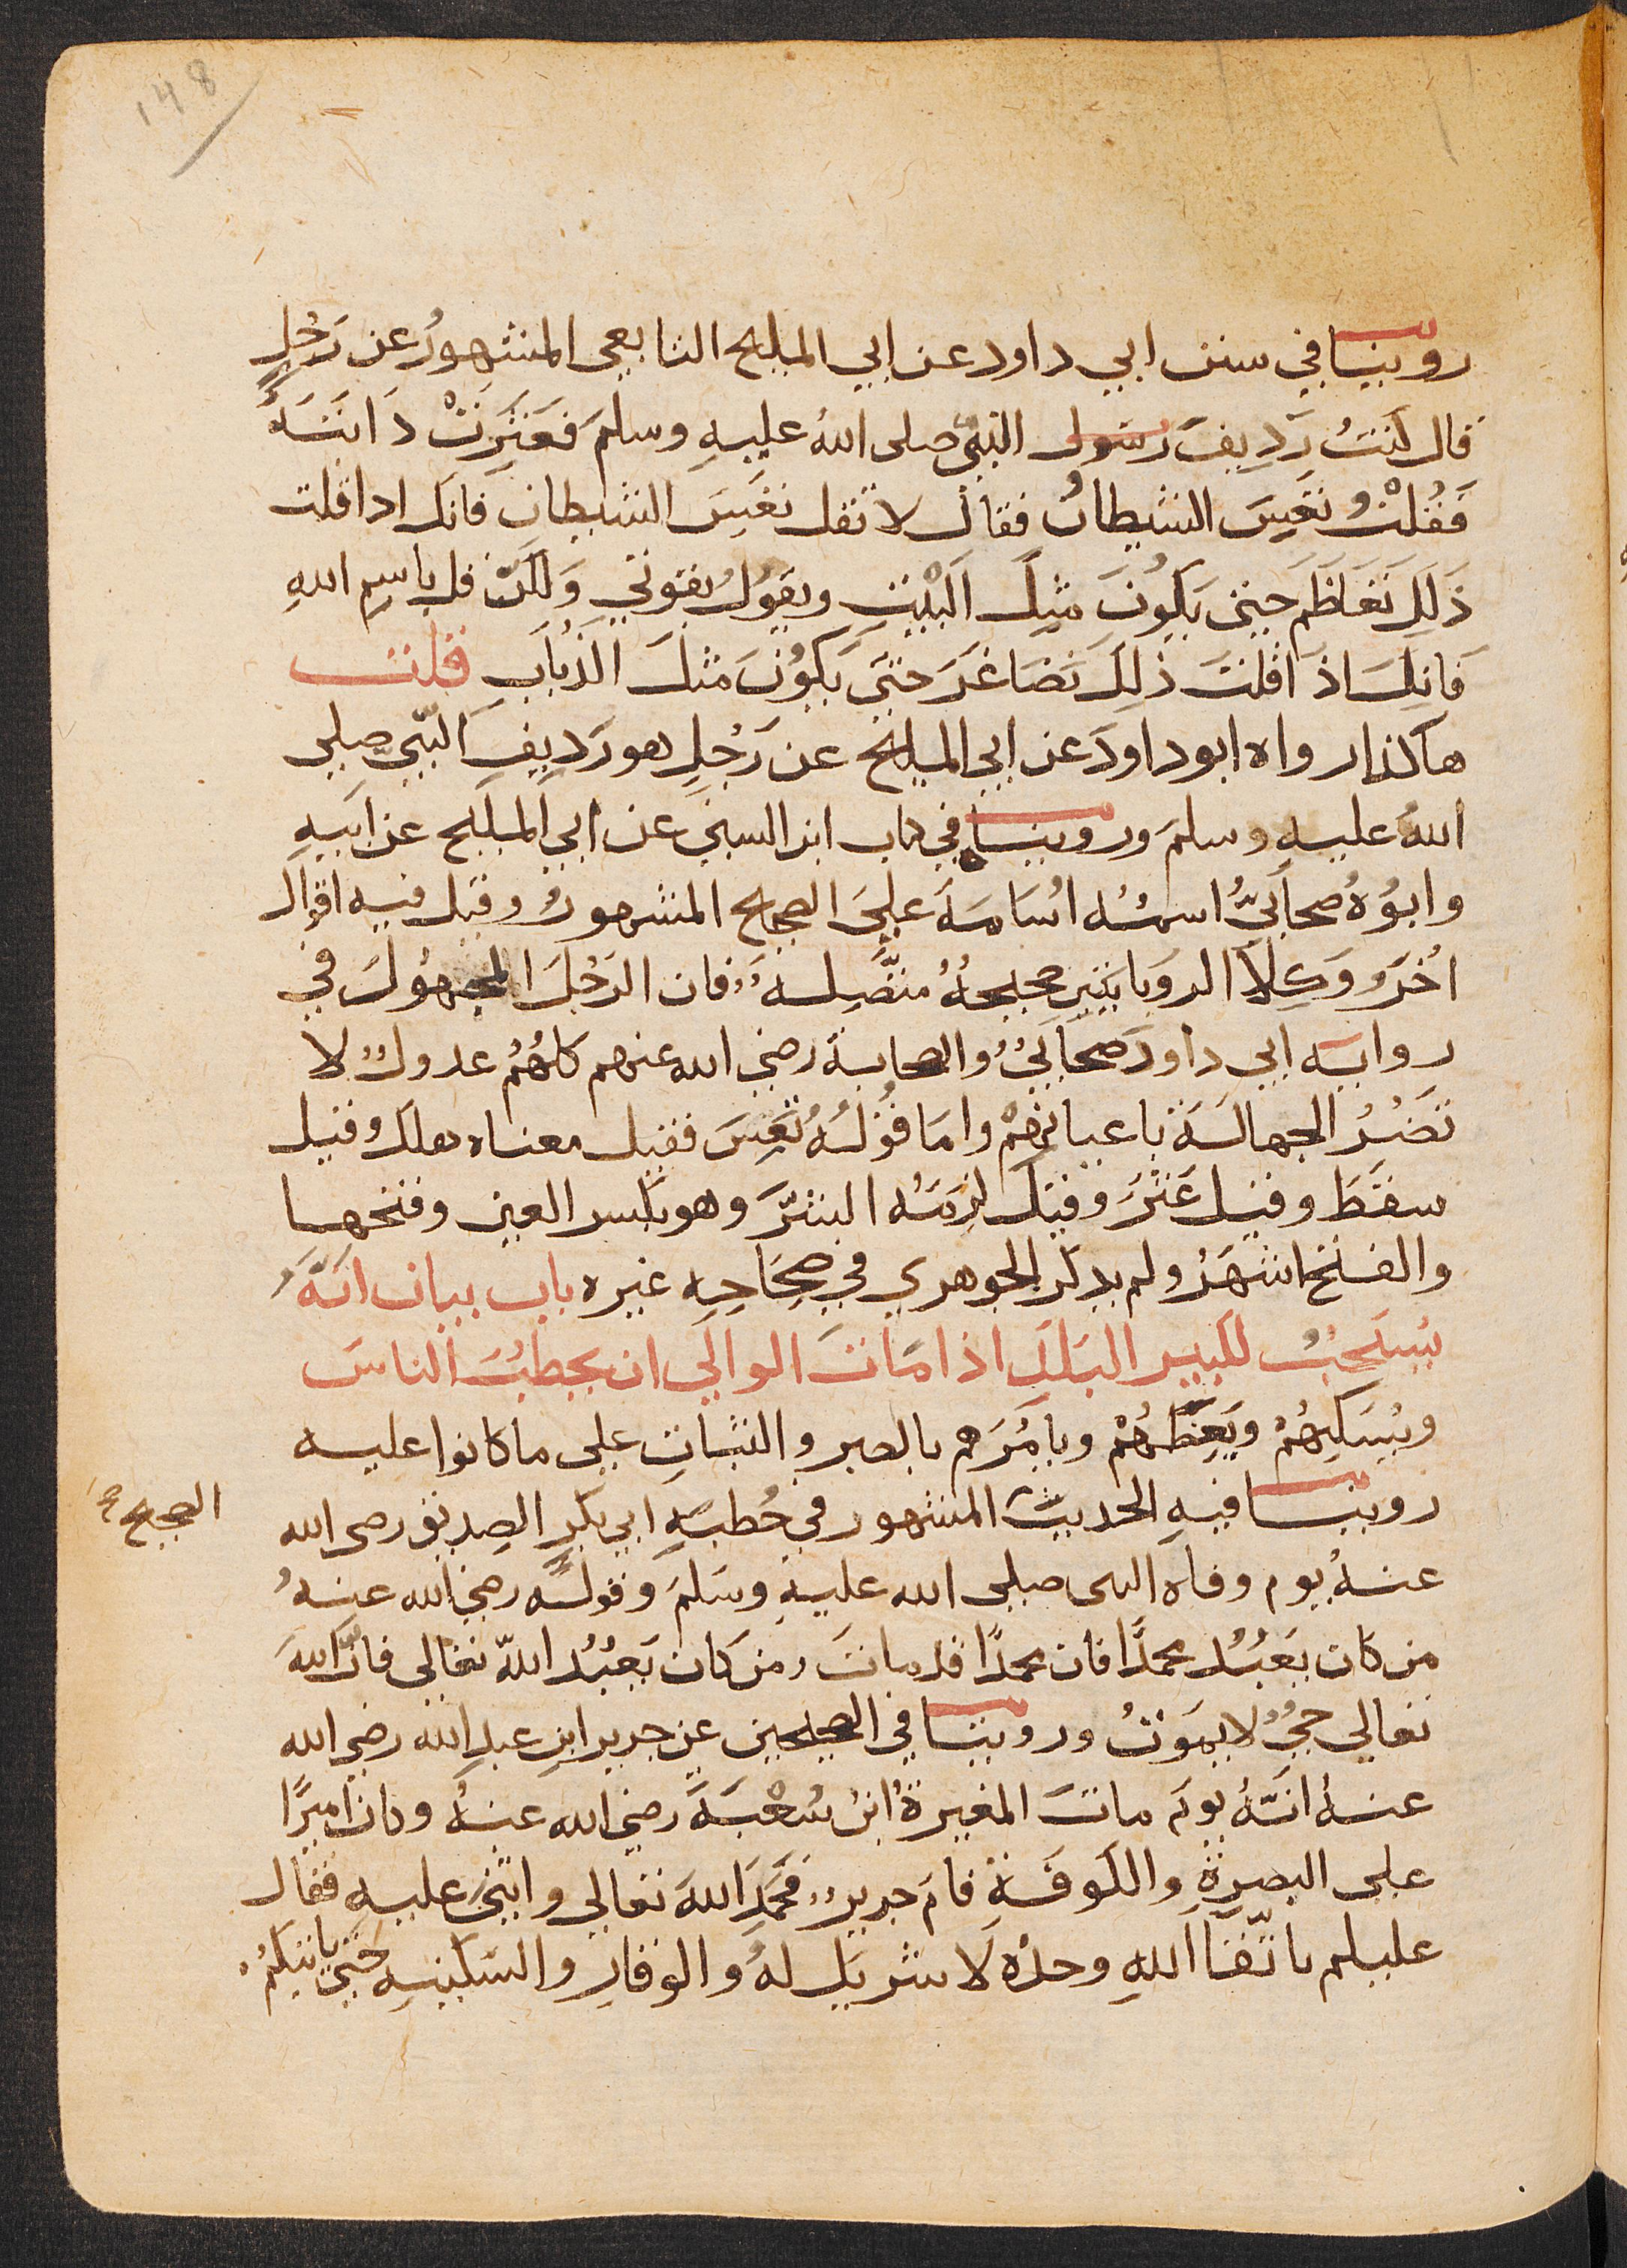 148
روينا في سنن ابي داود عن ابي المليح التابعي المشهورُ عن رَجُلٍ
قال كنتُ رَدِيفَ رسول النبي صلى الله عليهِ وسلمَ فَعَثَرَتْ دَابَتَهُ
فَقُلْتُ تَعِسَ الشيطانُ فقال لا تقل تعَسَ الشيطان فانك اذا قلت
ذَلِكَ تَعَاظَمَ حتى يَكُونَ مثلَ البَيْتِ ويقولُ بقوتي وَلكن قل باسمِ اللهِ
فَانكَ اذَا قلتَ ذلِكَ تَصَاغَرَ حتىَ يَكُونَ مثلَ الذُبَابِ قلت
هاكذا رواه ابو داودَ عن ابي المليح عن رَجُلٍ هو رَدِيفِ النَّبِي صلى
اللهُ عليهِ وسلمَ وروينا في كتاب ابن السني عن ابي المليح عن ابيهِ
وابوُهُ صحابيٌّ اسمُه اُسَامَةَ علىَ الصحيح المشهورُ وقيل فيه اقوال
اُخرَ وَكِلا الروَايَتَينِ صحيحهُ متَّصِله فان الرَجُلَ المجهُولَ في
رواية ابي داودَ صحَابيُ والصحابة رضي الله عنهم كلهُمُ عدولٌ لا
تَضُرُ الجهالَة باعيانهِمْ واما قُولُهُ تَعِسَ فقيل معناه هلك وقيل
سقَطَ وقيل عَثرَ وقيل لزمَهُ الشرَّ وهو بكسر العين وفتحها
والفتح اشهَرُ ولم يذكر الجوهري في صِحَاحِهِ غيره باب بيان انَّهُ
يُستَحبُ لكبير البَلَدِ اذا مَاتَ الوالي ان يخطبُ الناسَ
ويُسَكِنهُمْ ويَعِظَهُمْ ويامُرَهم بالصبر والثباتِ على ما كانوا عليه
روينا فيهِ الحديث المشهور في خُطبَةِ ابي بكر الصِديق رضى الله
الصحيح صح
عنهُ يوم وفاه النبى صلى الله عليهِ وسَلمَ وقولُه رضي الله عنهُ
من كان يعبُد محمدًا فان محمدًا قد ماتَ ومن كان يَعبُدُ اللهَ تعالى فانَّ اللهَ
تعالي حيٌ لا يموَتُ وروينا في الصحيحين عن جرير ابنِ عبدِ الله رضي الله
عنهُ انَّهُ يومَ ماتَ المغيرةُ ابن شُعْبَةَ رضي الله عنهُ وكان اميرًا
على البصرةِ والكوفَةِ قامَ جريرٌ فَحَمِدَ اللهَ تعالي واثنى عليهِ فقال
عليكم باتّقا اللهِ وحدَه لاَ شريك لهُ والوقارِ والسَكينهِ حتى ياتيكمُ